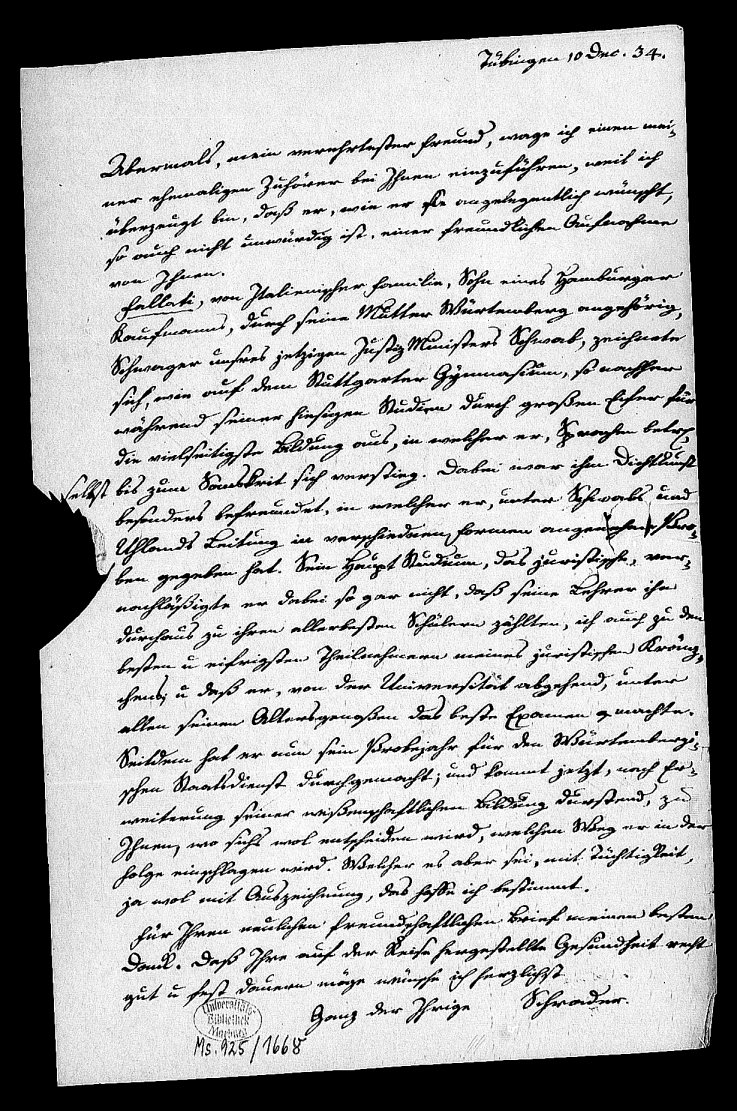 Tübingen 10 Dec. 34.
Abermals, mein verehrtester Freund, wage ich einen mei-
ner ehemaligen Zuhörer bei Ihnen einzuführen, weil ich
überzeugt bin, daß er, wie er es angelegentlich wünscht,
so auch nicht unwürdig ist, einer freundlichen Aufnahme
von Ihnen.
Fallati, von Italienischer Familie, Sohn eines Hamburger
Kaufmanns, durch seine Mutter Würtemberg angehörig,
Schwager unsres jetzigen Justiz Ministers Schwab, zeichnete
sich, wie auf dem Stuttgarter Gymnasium, so nachher
während seiner hiesigen Studien durch großen Eifer für
die vielseitigste Bildung aus, in welcher er, Sprachen betr.,
selbst bis zum Sanskrit sich verstieg. Dabei war ihm Dichtkunst
besonders befreundet, in welcher er, unter Schwabs und
Uhlands Leitung in verschiednen Formen Pro-
ben gegeben hat. Sein Haupt Studium, das juristische, ver-
nachläßigte er dabei so gar nicht, daß seine Lehrer ihn
durchaus zu ihren allerbesten Schülern zählten, ich auch zu den
besten u eifrigsten Theilnehmern meines juristischen Kränz-
chens, u daß er, von der Universität abgehend, unter
allen seinen Altersgenoßen das beste Examen machte.
Seitdem hat er nun sein Probejahr für den Würtembergi-
schen Staatsdienst durchgemacht; und kommt jetzt, nach Er-
weiterung seiner wißenschaftlichen Bildung durstend, zu
Ihnen, wo sichs wol entscheiden wird, welchen Weg er in der
Folge einschlagen wird. Welcher es aber sei, mit Tüchtigkeit,
ja wol mit Auszeichnung, das hoffe ich bestimmt.
Für Ihren neulichen freundschaftlichen Brief meinen besten
Dank. Daß Ihre auf der Reise hergestellte Gesundheit recht
gut u fest dauern möge wünsche ich herzlichst
Ganz der Ihrige Schrader.
Universitäts-
Bibliothek
Marburg
Ms. 925/1668